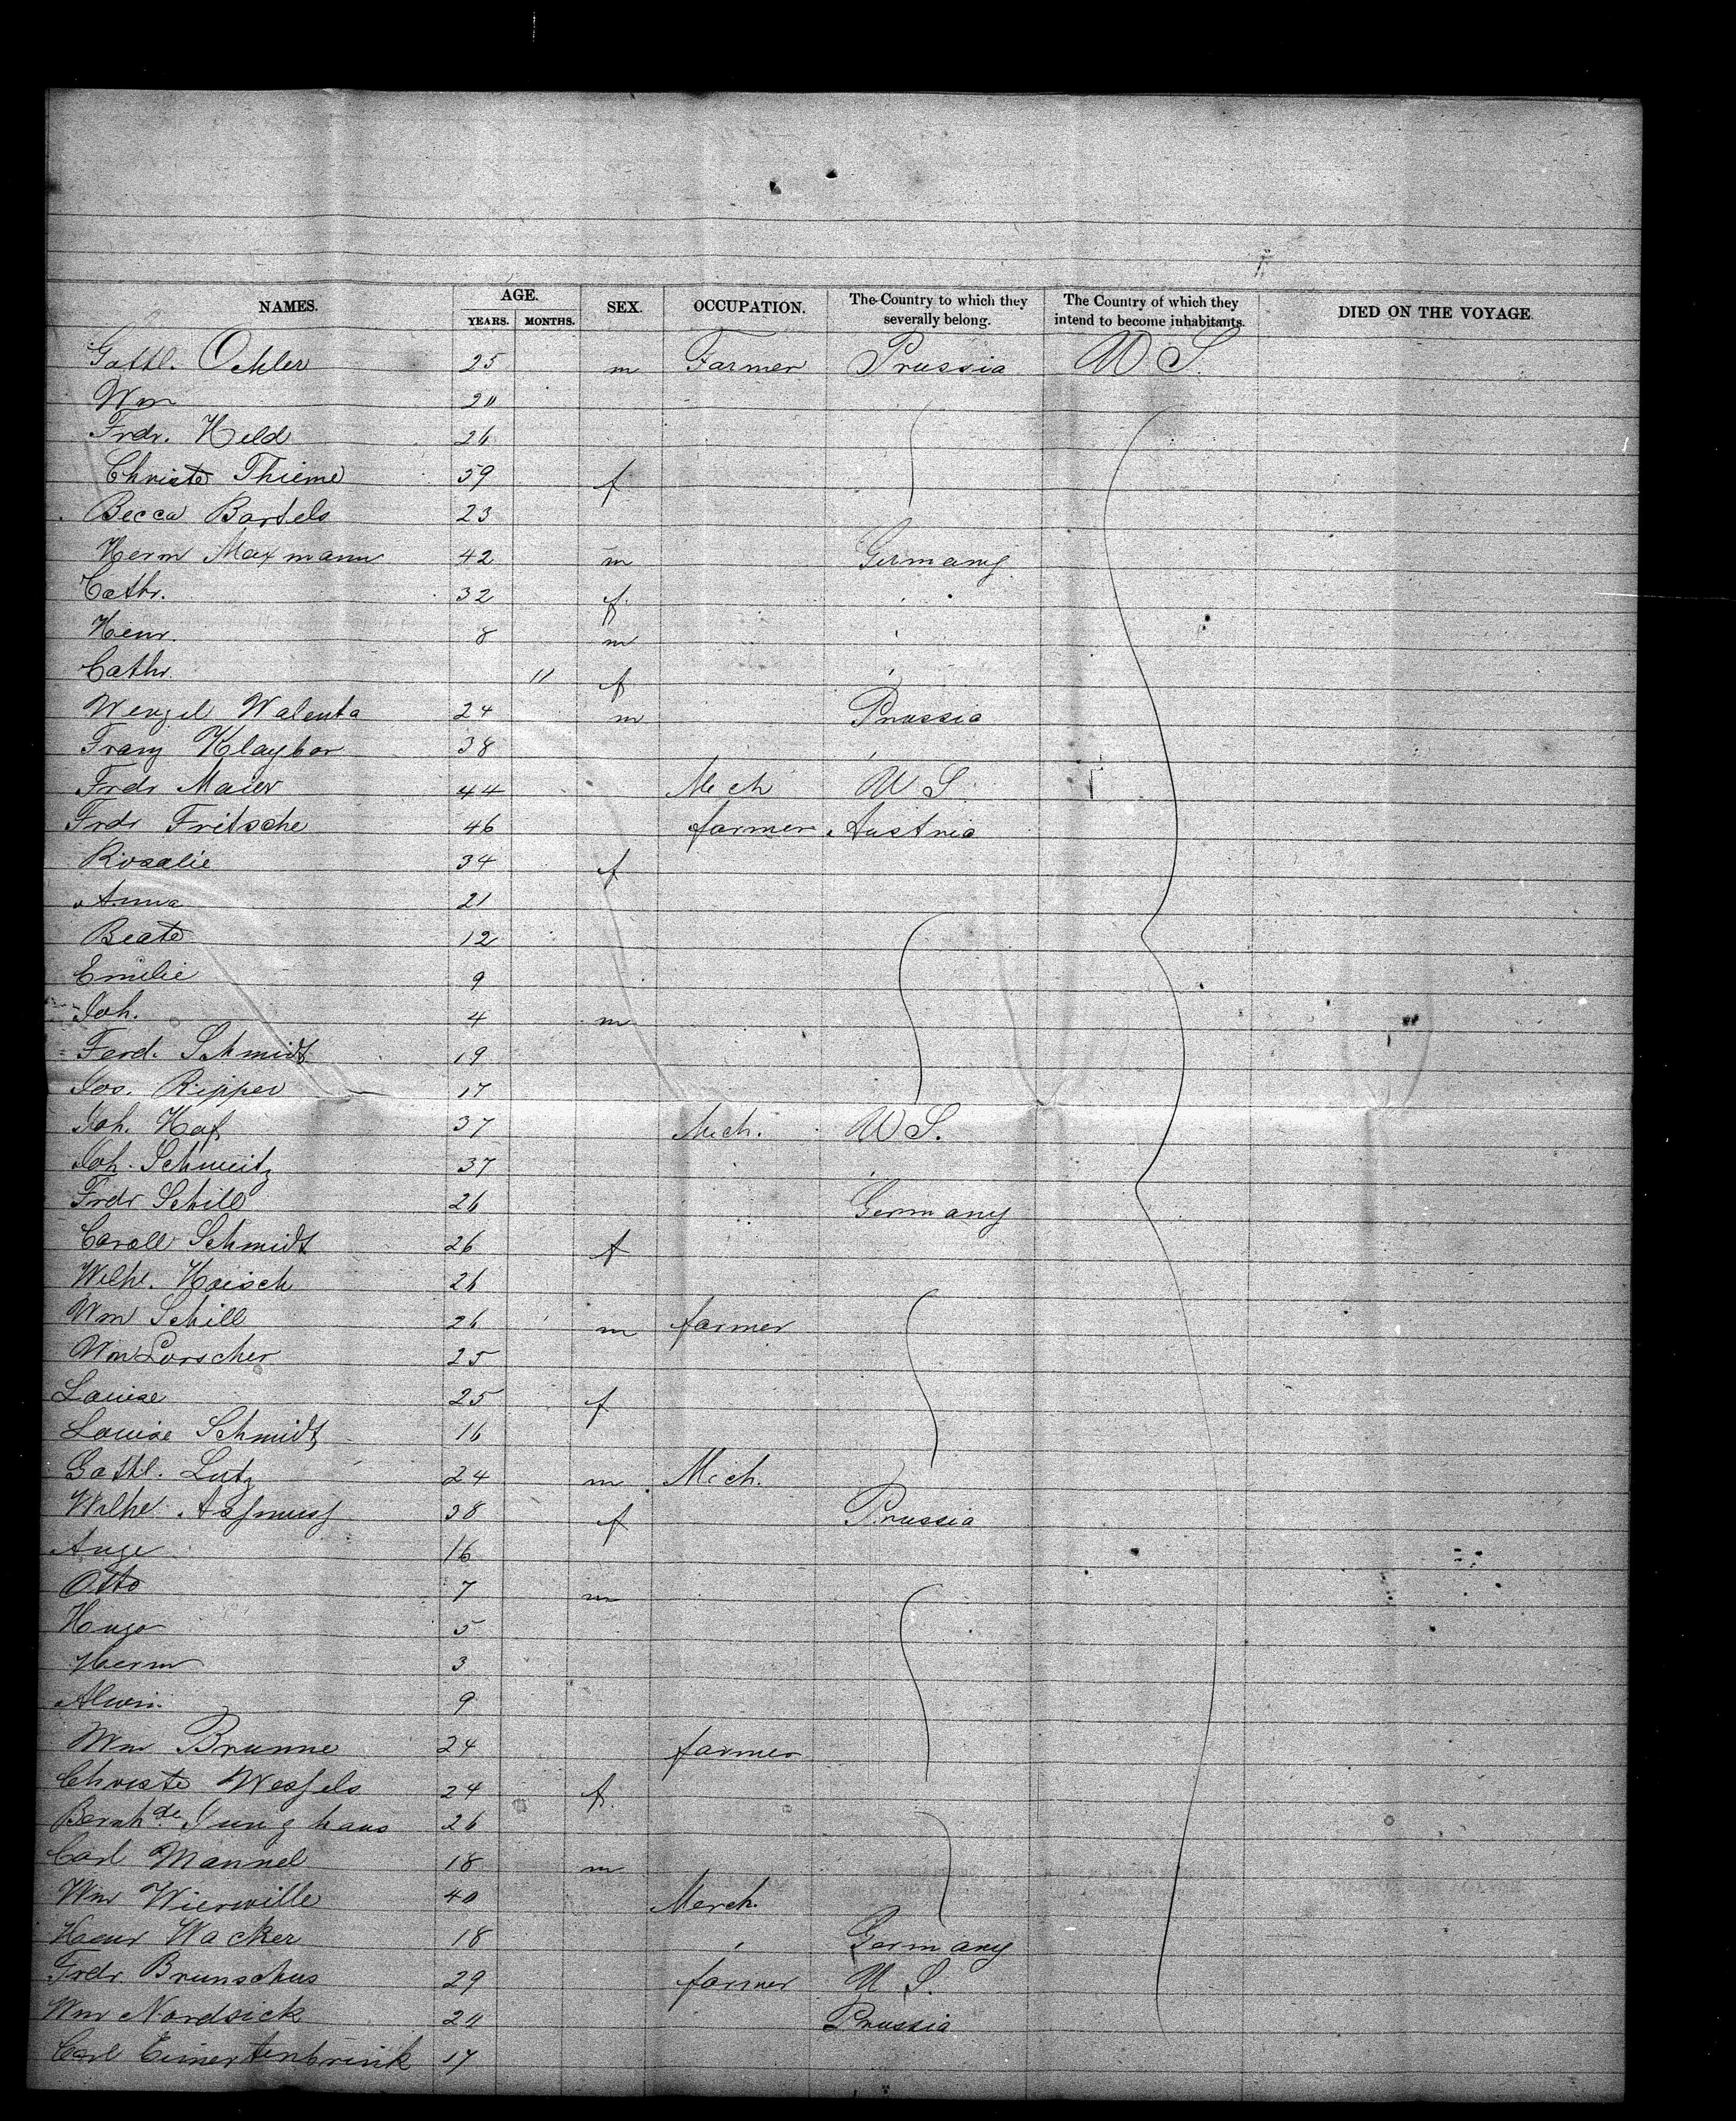 NAMES. AGE. SEX. OCCUPATION. The Country to which they severally belong. The Country of which they intend to become inhabitants. DIED ON THE VOYAGE
YEARS. MONTHS.
Gottl. Oehler 25 m Farmer Prussia U S.
Wm 20
Frdr. Held 26
Christe Thieme 59 f
Becca Bartels 23
Herm Maxmann 42 m Germany
Cathr. 32 f
Henr. 8 m
Cathr. 11 f
Wenzel Walenta 24 m Prussia
Franz Klaybor 38
Frdr Maier 44 Mech U S
Frdr Fritsche 46 farmer Austria
Rosalie 34 f
Anna 21
Beate 12
Emilie 9
Joh. 4 m
Ferd. Schmidt 19
Jos. Ripper 17
Joh. Haf 37 Mech. U S.
Joh. Schmeitz 37
Frdr Schill 26 Germany
Caroll Schmidt 26 f
Wilhe. Hoisch 26
Wm Schill 26 m farmer
Wm Lorscher 25
Louise 25 f
Louise Schmidt 16
Gottl. Lutz 24 m Mich.
Wilhe. Assmuss 38 f Prussia
Auge 16
Otto 7 m
Hugo 5
Herm 3
Alwin. 9
Wm Brunne 24 farmer
Christe Wessels 24 f.
Bernh.de Junghans 26
Carl Mannel 18 m
Wm Wierwille 40 Merch.
Henr Wacker 18 Germany
Frdr. Brunschus 29 farmer U S.
Wm Nordsick 20 Prussia
Carl Eimertenbrink 17